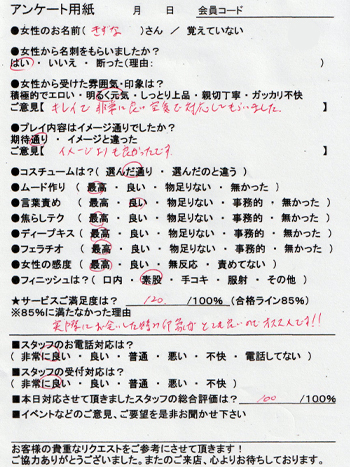 アンケート用紙　　月　　日　　会員コード
●女性のお名前( きずな )さん / 覚えていない
●女性から名刺をもらいましたか?
はい・いいえ・断った(理由:　　　　　　)
●女性から受けた雰囲気・印象は?
積極的でエロい・明るく元気・しっとり上品・親切丁寧・ガッカリ不快
ご意見【 キレイで 非常に良い 笑顔で 対応してもらいました。 】
●プレイ内容はイメージ通りでしたか?
期待通り ・ イメージと違った
ご意見【 イメージよりも良かったです。 】
●コスチュームは?( 選んだ通り ・ 選んだのと違う )
●ムード作り ( 最高 ・ 良い ・ 物足りない ・ 無かった )
●言葉責め ( 最高 ・ 良い ・ 物足りない ・ 事務的 ・ 無かった )
●焦らしテク ( 最高 ・ 良い ・ 物足りない ・ 事務的 ・ 無かった )
●ディープキス ( 最高 ・ 良い ・ 物足りない ・ 事務的 ・ 無かった )
●フェラチオ ( 最高 ・ 良い ・ 物足りない ・ 事務的 ・ 無かった )
●女性の感度 ( 最高 ・ 良い ・ 無反応 ・ 責めてない )
●フィニッシュは?( 口内 ・ 素股 ・ 手コキ ・ 服射 ・ その他 )
★サービスご満足度は? 120 /100% (合格ライン85%)
※85%に満たなかった理由
実際にお会いした時の印象がとても良いのでオススメです!!
■スタッフのお電話対応は?
( 非常に良い ・ 良い ・ 普通 ・ 悪い ・ 不快 ・ 電話してない )
■スタッフの受付対応は?
( 非常に良い ・ 良い ・ 普通 ・ 悪い ・ 不快 )
■本日対応させて頂きましたスタッフの総合評価は? 100 /100%
■イベントなどのご意見、ご要望を是非お聞かせ下さい
お客様の貴重なリクエストをご参考にさせて頂きます!
ご協力ありがとうございました。またのご来店、心よりお待ちしております。